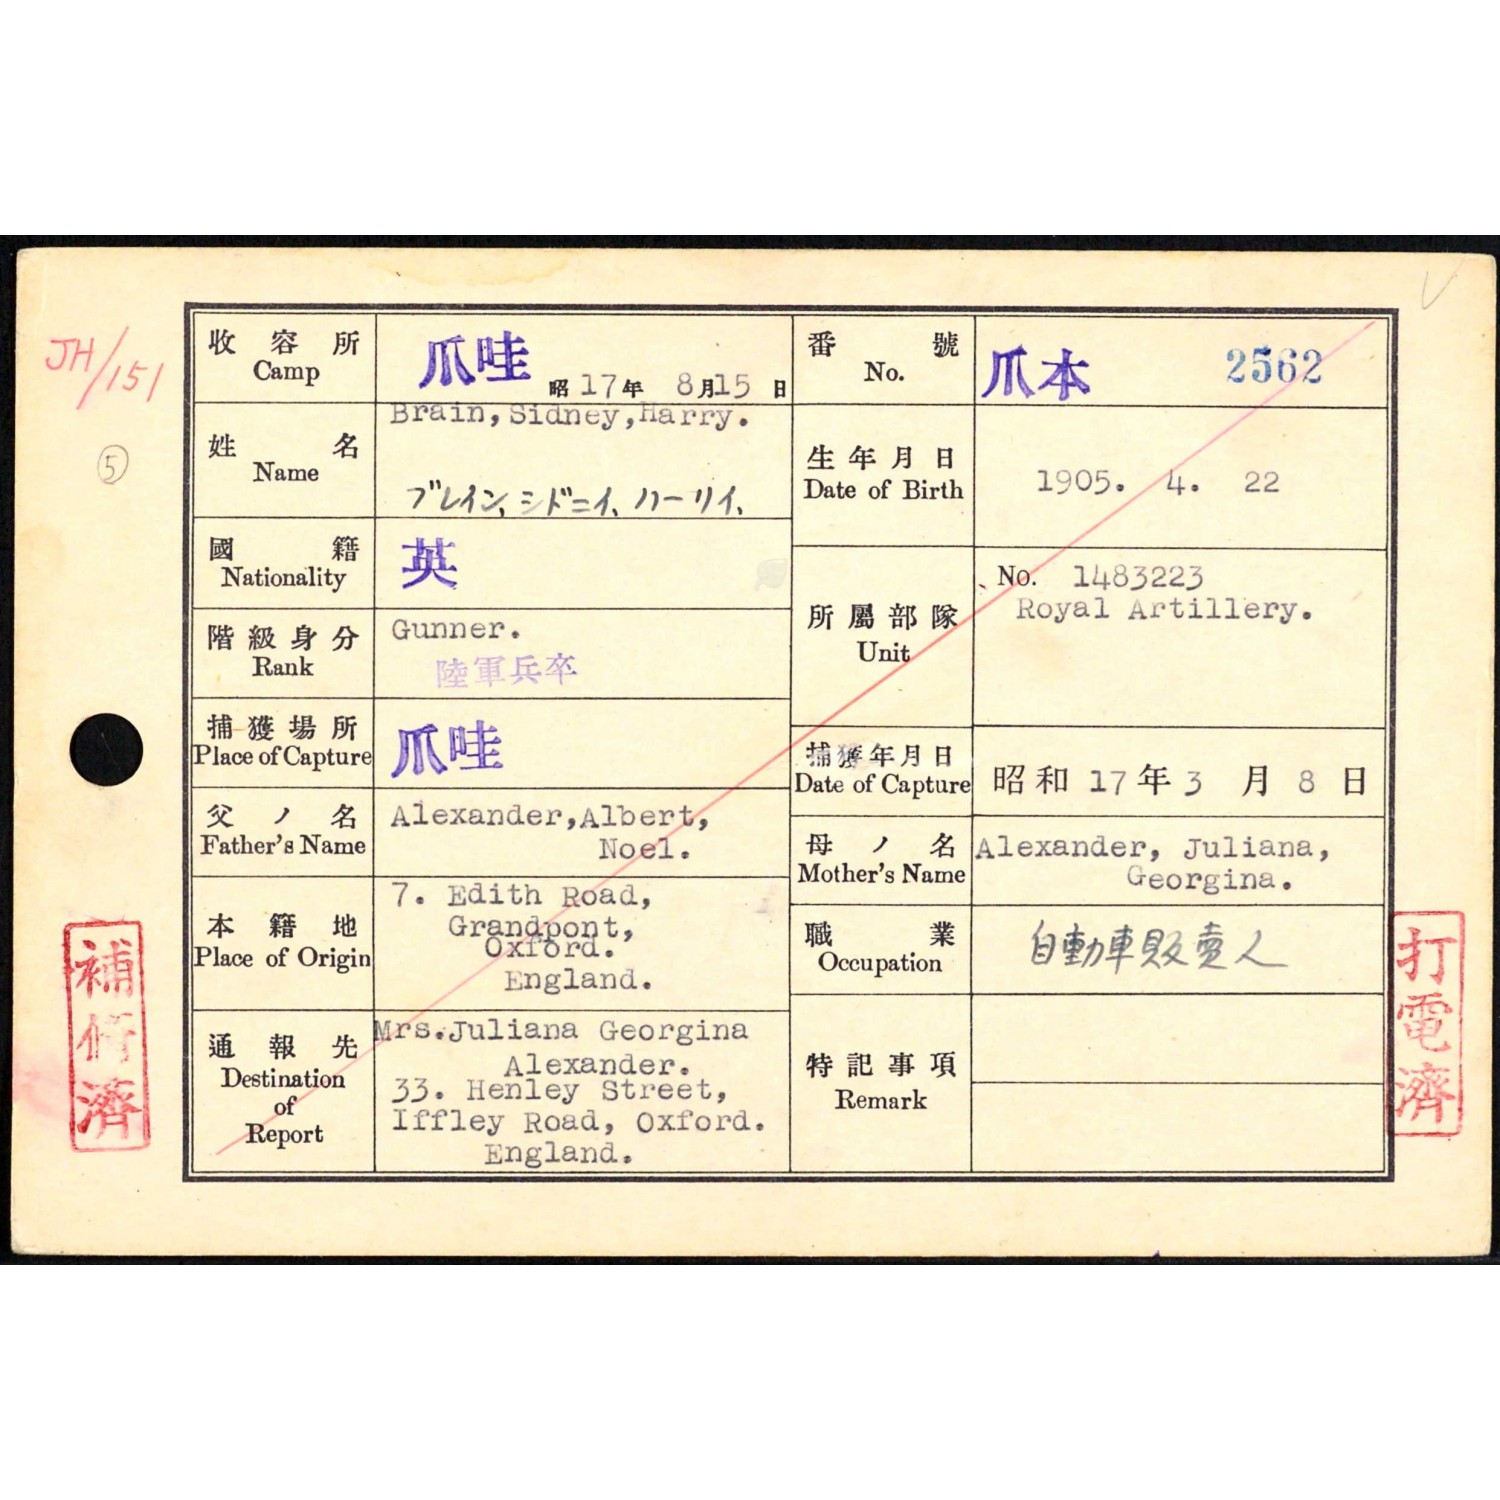 JH/151
5
収容所
Camp
爪哇
昭17年 8月15日
番號
No.
爪本 2562
姓名
Name
Brain,Sidney,Harry.
ブレイン、シドニイ、ハーリイ、
生年月日
Date of Birth
1905. 4. 22
國籍
Nationality
英
所屬部隊
Unit
No. 1483223
Royal Artillery.
階級身分
Rank
Gunner.
陸軍兵卒
捕獲場所
Place of Capture
爪哇
捕獲年月日
Date of Capture
昭和17年3月8日
父ノ名
Father's Name
Alexander,Albert,
Noel.
母ノ名
Mother's Name
Alexander, Juliana,
Georgina.
本籍地
Place of Origin
7. Edith Road,
Grandpont,
Oxford.
England.
職業
Occupation
自動車販賣人
通報先
Destination
of
Report
Mrs.Juliana Georgina
Alexander.
33. Henley Street,
Iffley Road, Oxford.
England.
特記事項
Remark
補修済
打電濟